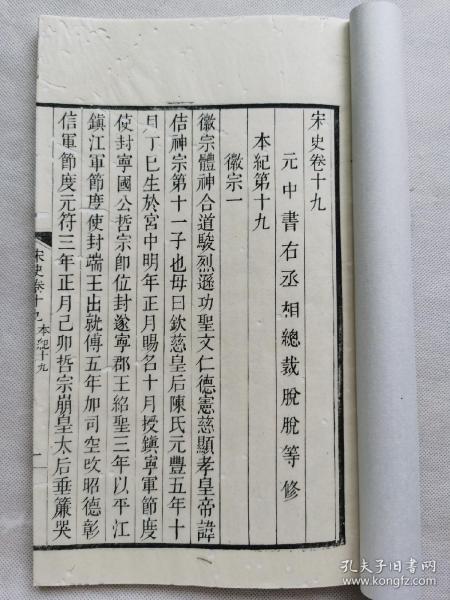 宋史卷十九
元中書右丞相總裁脫脫等修
本紀第十九
徽宗一
徽宗體神合道駿烈遜功聖文仁德憲慈顯孝皇帝諱
佶神宗第十一子也母曰欽慈皇后陳氏元豐五年十
月丁巳生於宮中明年正月賜名十月授鎮寧軍節度
使封寧國公哲宗即位封遂寧郡王紹聖三年以平江
鎮江軍節度使封端王出就傅五年加司空改昭德彰
信軍節度元符三年正月己卯哲宗崩皇太后垂簾哭
宋史卷十九 本紀十九
一
孔夫子旧书网
www.kongfz.com